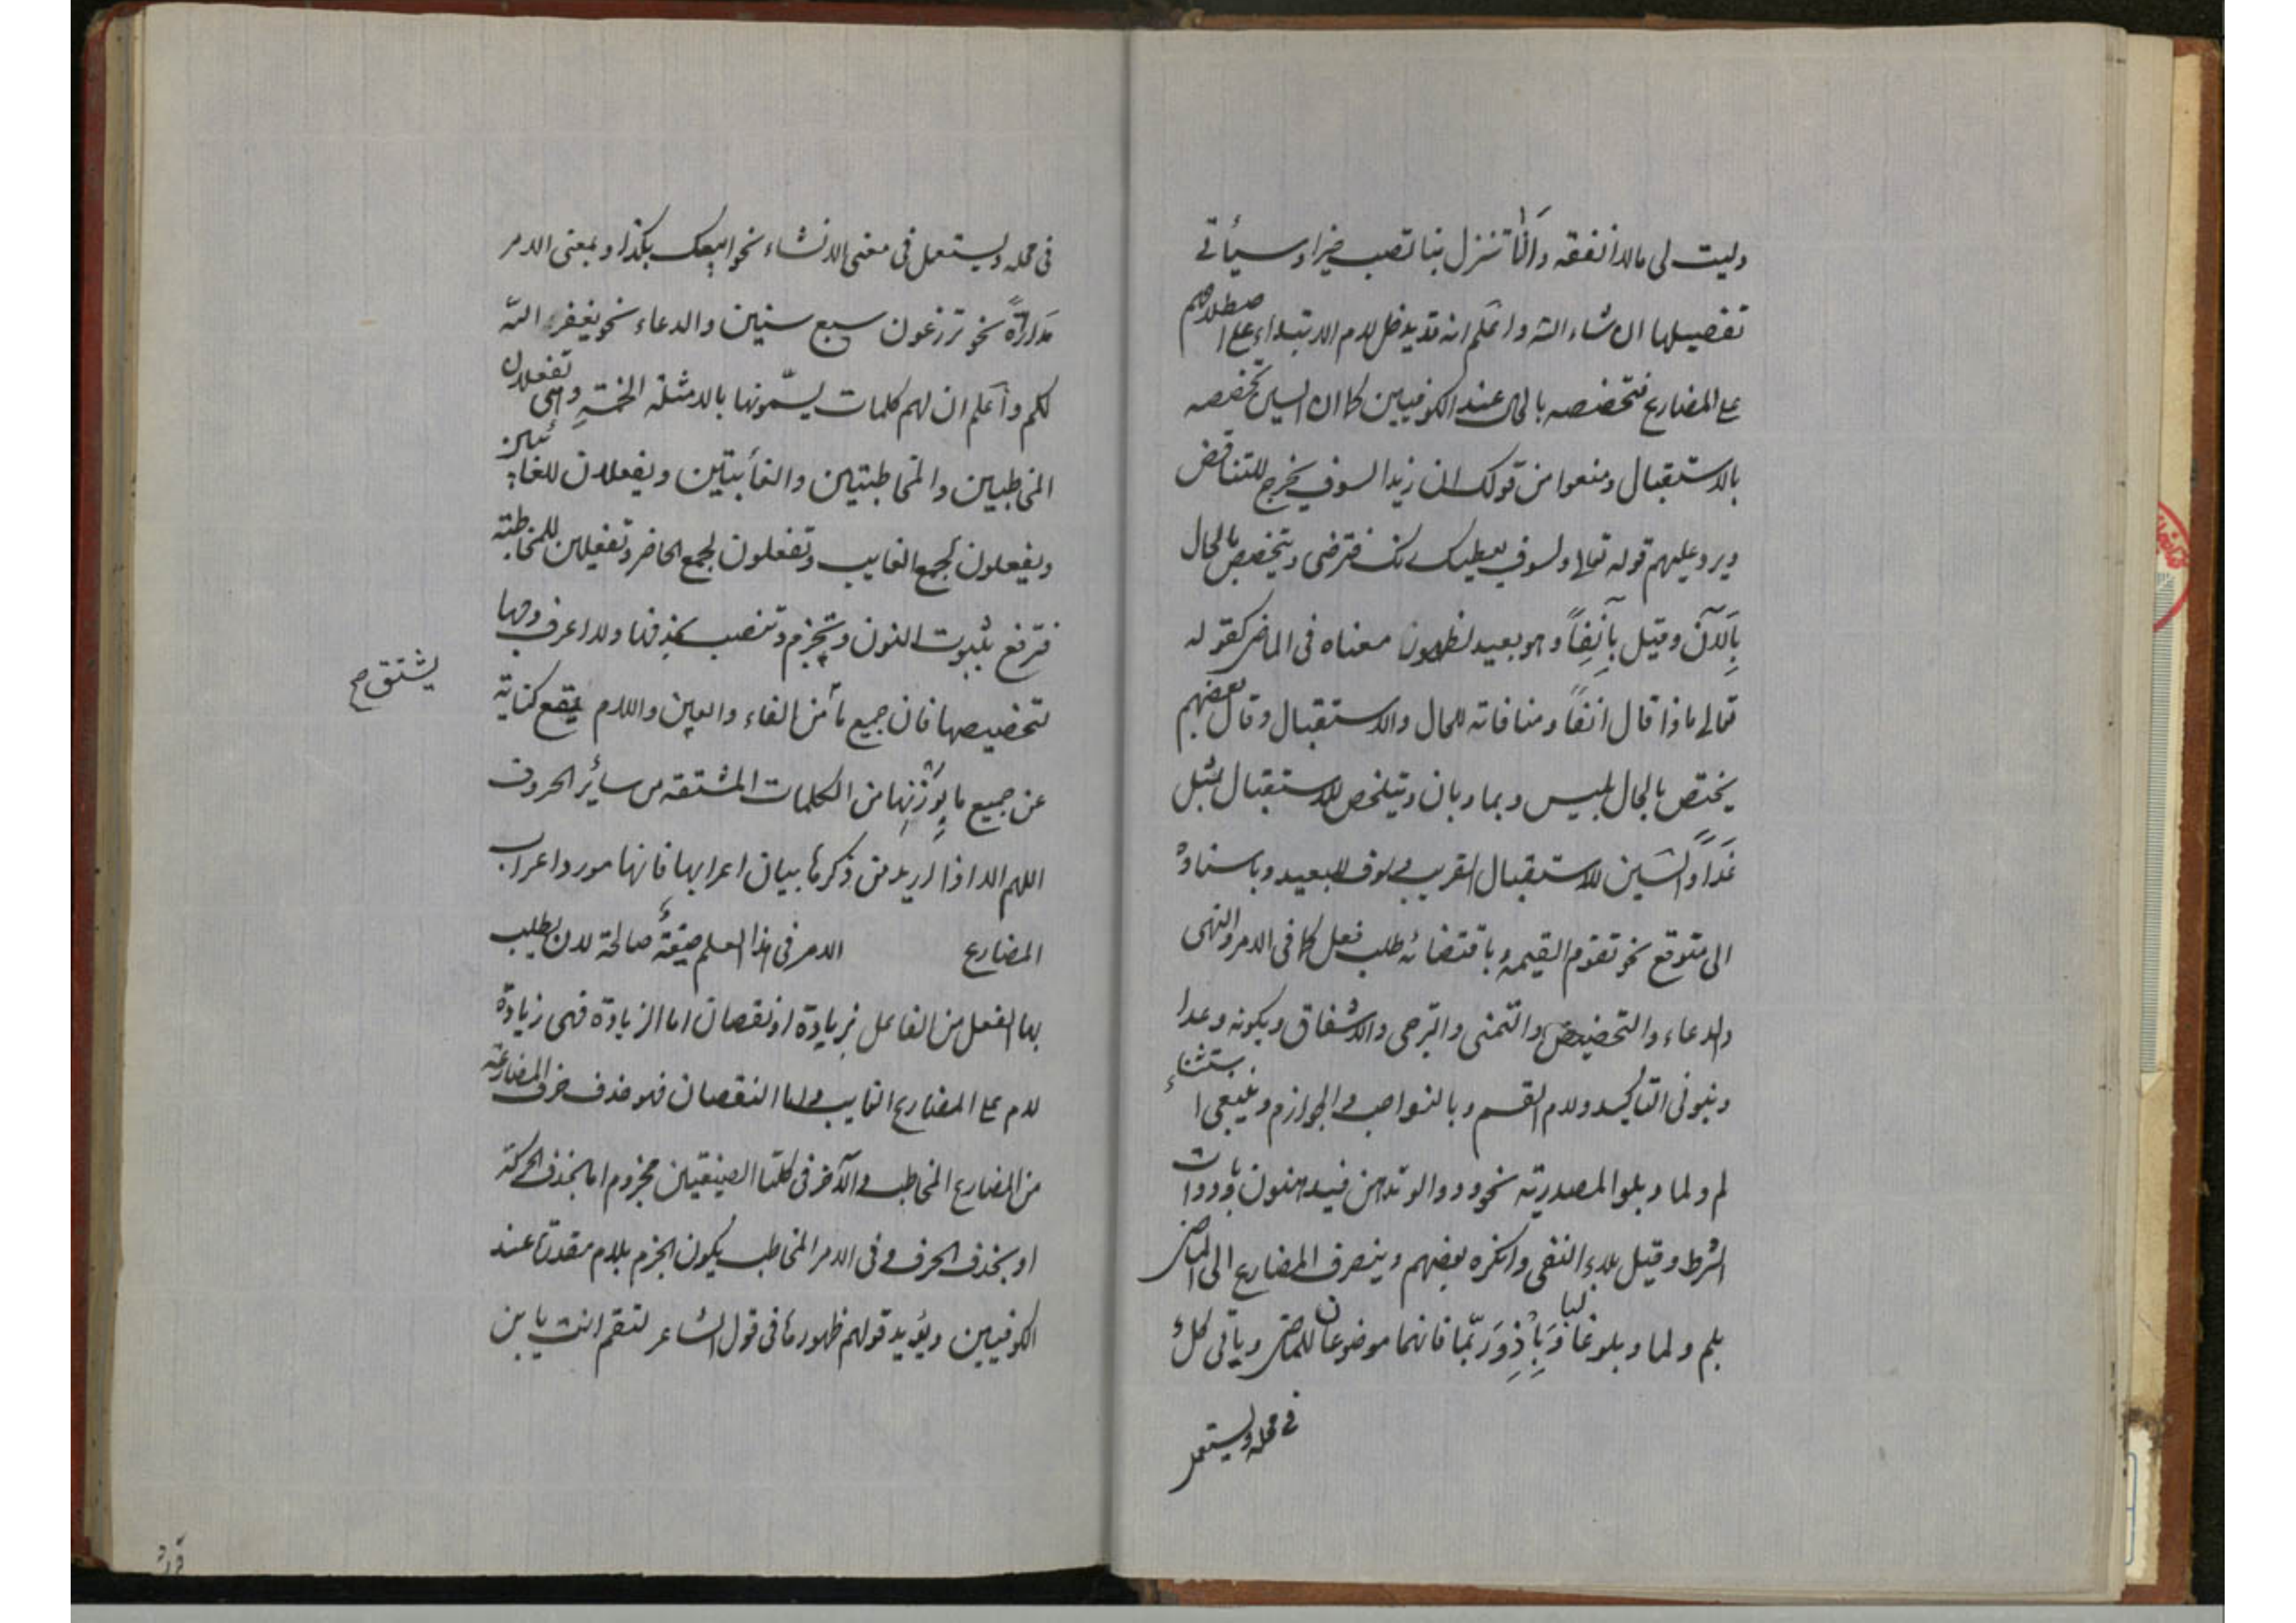 وليت لى مالا انفقه وألَّا تنزل بنا تصب خيرا وسيأتى
تفصيلها ان شاء الله واعلم انه قد يدخل لام الابتداء على اصطلاحهم
على المضارع فتخصصه بالحال عند الكوفيين كما ان السين تخصصه
بالاستقبال ومنعوا من قولك ان زيدا لسوف يخرج للتناقض
ويرد عليهم قوله تعالى ولسوف يعطيك ربك فترضى ويتخصص بالحال
بِالآنَ وقيل بآنِفاً وهو بعيد لظهور معناه فى الماضى كقوله
تعالى ماذا قال انفاً ومنافاته للحال والاستقبال وقال بعضهم
يختص بالحال بليس وبما وبان ويتخلص للاستقبال بمثل
غَداً والسّين للاستقبال القريب وسوف للبعيد وباسناده
الى متوقع نحو تقوم القيمة وباقتضائه طلب فعل كما فى الامر والنهى
والدعاء والتحضيض والتمنى والترجى والاشفاق وبكونه وعدا
وبنونى التاكيد ولام القسم وبالنواصب والجوازم وينبغى استثناء
لم ولما وبلو المصدرية نحو ودوا لو تدهن فيدهنون وبادوات
الشرط وقيل بلاء النفى وانكره بعضهم وينصرف المضارع الى الماضى
بلم ولما وبلو غالبا وَبِإذِ وَرُبّما فانهما موضوعان للماضى وياتى كل
فى محله ويستعمل
فى محله ويستعمل فى معنى الانشاء نحو ابيعك بكذا وبمعنى الامر
مَداراةً نحو تزرعون سبع سنين والدعاء نحو يغفر الله
لكم وأعلم ان لهم كلمات يسمّونها بالامثلة الخمسةِ وهى تفعلان
المخاطبين والمخاطبتين والغائبتين ويفعلان للغائبين
ويفعلون لجمع الغايب وتفعلون لجمع الحاضر وتفعلين للمخاطبة
فترفع بثبوت النون وتجزم وتنصب بحذفها ولا اعرف وجها
لتخصيصها فان جميع ما من الفاء والعين واللام يقع كناية
يشتق صح
عن جميع ما يوزنها من الكلمات المشتقة من سائر الحروف
اللهم الا اذا اريد من ذكرها بيان اعرابها فانها مورد اعراب
المضارع الامر فى هذا العلم صيغةٌ صالحة لان يطلب
بها الفعل من الفاعل بزيادة او نقصان اما الزيادة فهى زيادة
لام على المضارع الغايب واما النقصان فهو حذف حرف المضارعة
من المضارع المخاطب والآخر فى كلتا الصيغتين مجزوم اما بحذف الحركة
او بحذف الحرف وفى الامر المخاطب يكون الجزم بلام مقدرة عند
الكوفيين ويؤيد قولهم ظهورها فى قول الشاعر لتقم انت يا بن